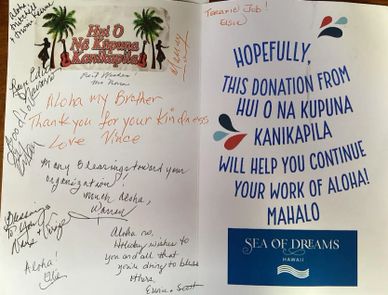 Aloha
Mitchell
+
Hui O
Na Kupuna
Kanikapila
Nancy
Best Wishes!
Aloha my Brother
Thank you for your Kindness
Love Vince
Many blessings toward your
organization!
Much Aloha,
Blessings
to you
Aloha!
Aloha no,
Holiday wishes to
you and all that
you're doing to bless
others.
+ Scott
Good
Job!
Elsie
HOPEFULLY,
THIS DONATION FROM
HUI O NA KUPUNA
KANIKAPILA
WILL HELP YOU CONTINUE
YOUR WORK OF ALOHA!
MAHALO
SEA OF DREAMS
HAWAII